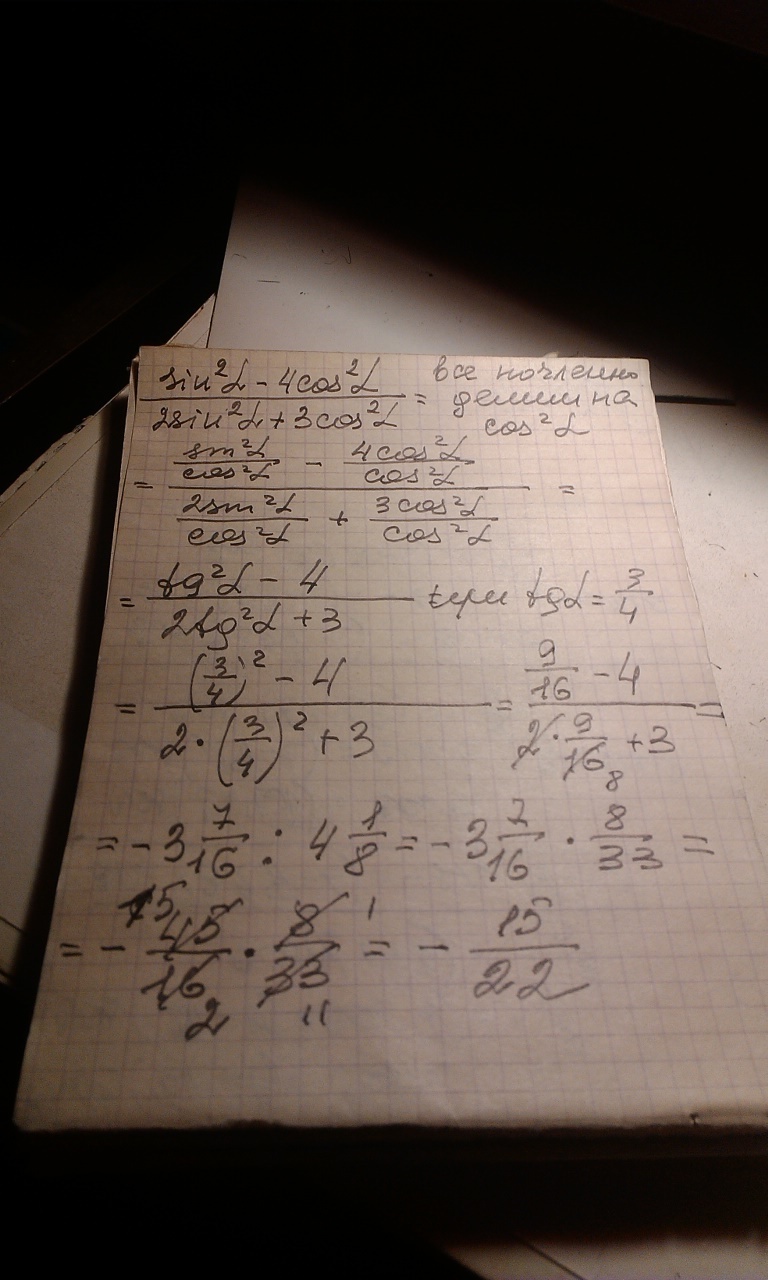 sin²α - 4cos²α / 2sin²α + 3cos²α = все почленно делим на cos²α
= sin²α/cos²α - 4cos²α/cos²α / 2sin²α/cos²α + 3cos²α/cos²α =
= tg²α - 4 / 2tg²α + 3 при tgα = 3/4
= (3/4)² - 4 / 2·(3/4)² + 3 = 9/16 - 4 / 2·9/16 8 + 3 =
= - 3 7/16 : 4 1/8 = - 3 7/16 · 8/33 =
= - 15 45/16 2 · 8 1/33 11 = - 15/22